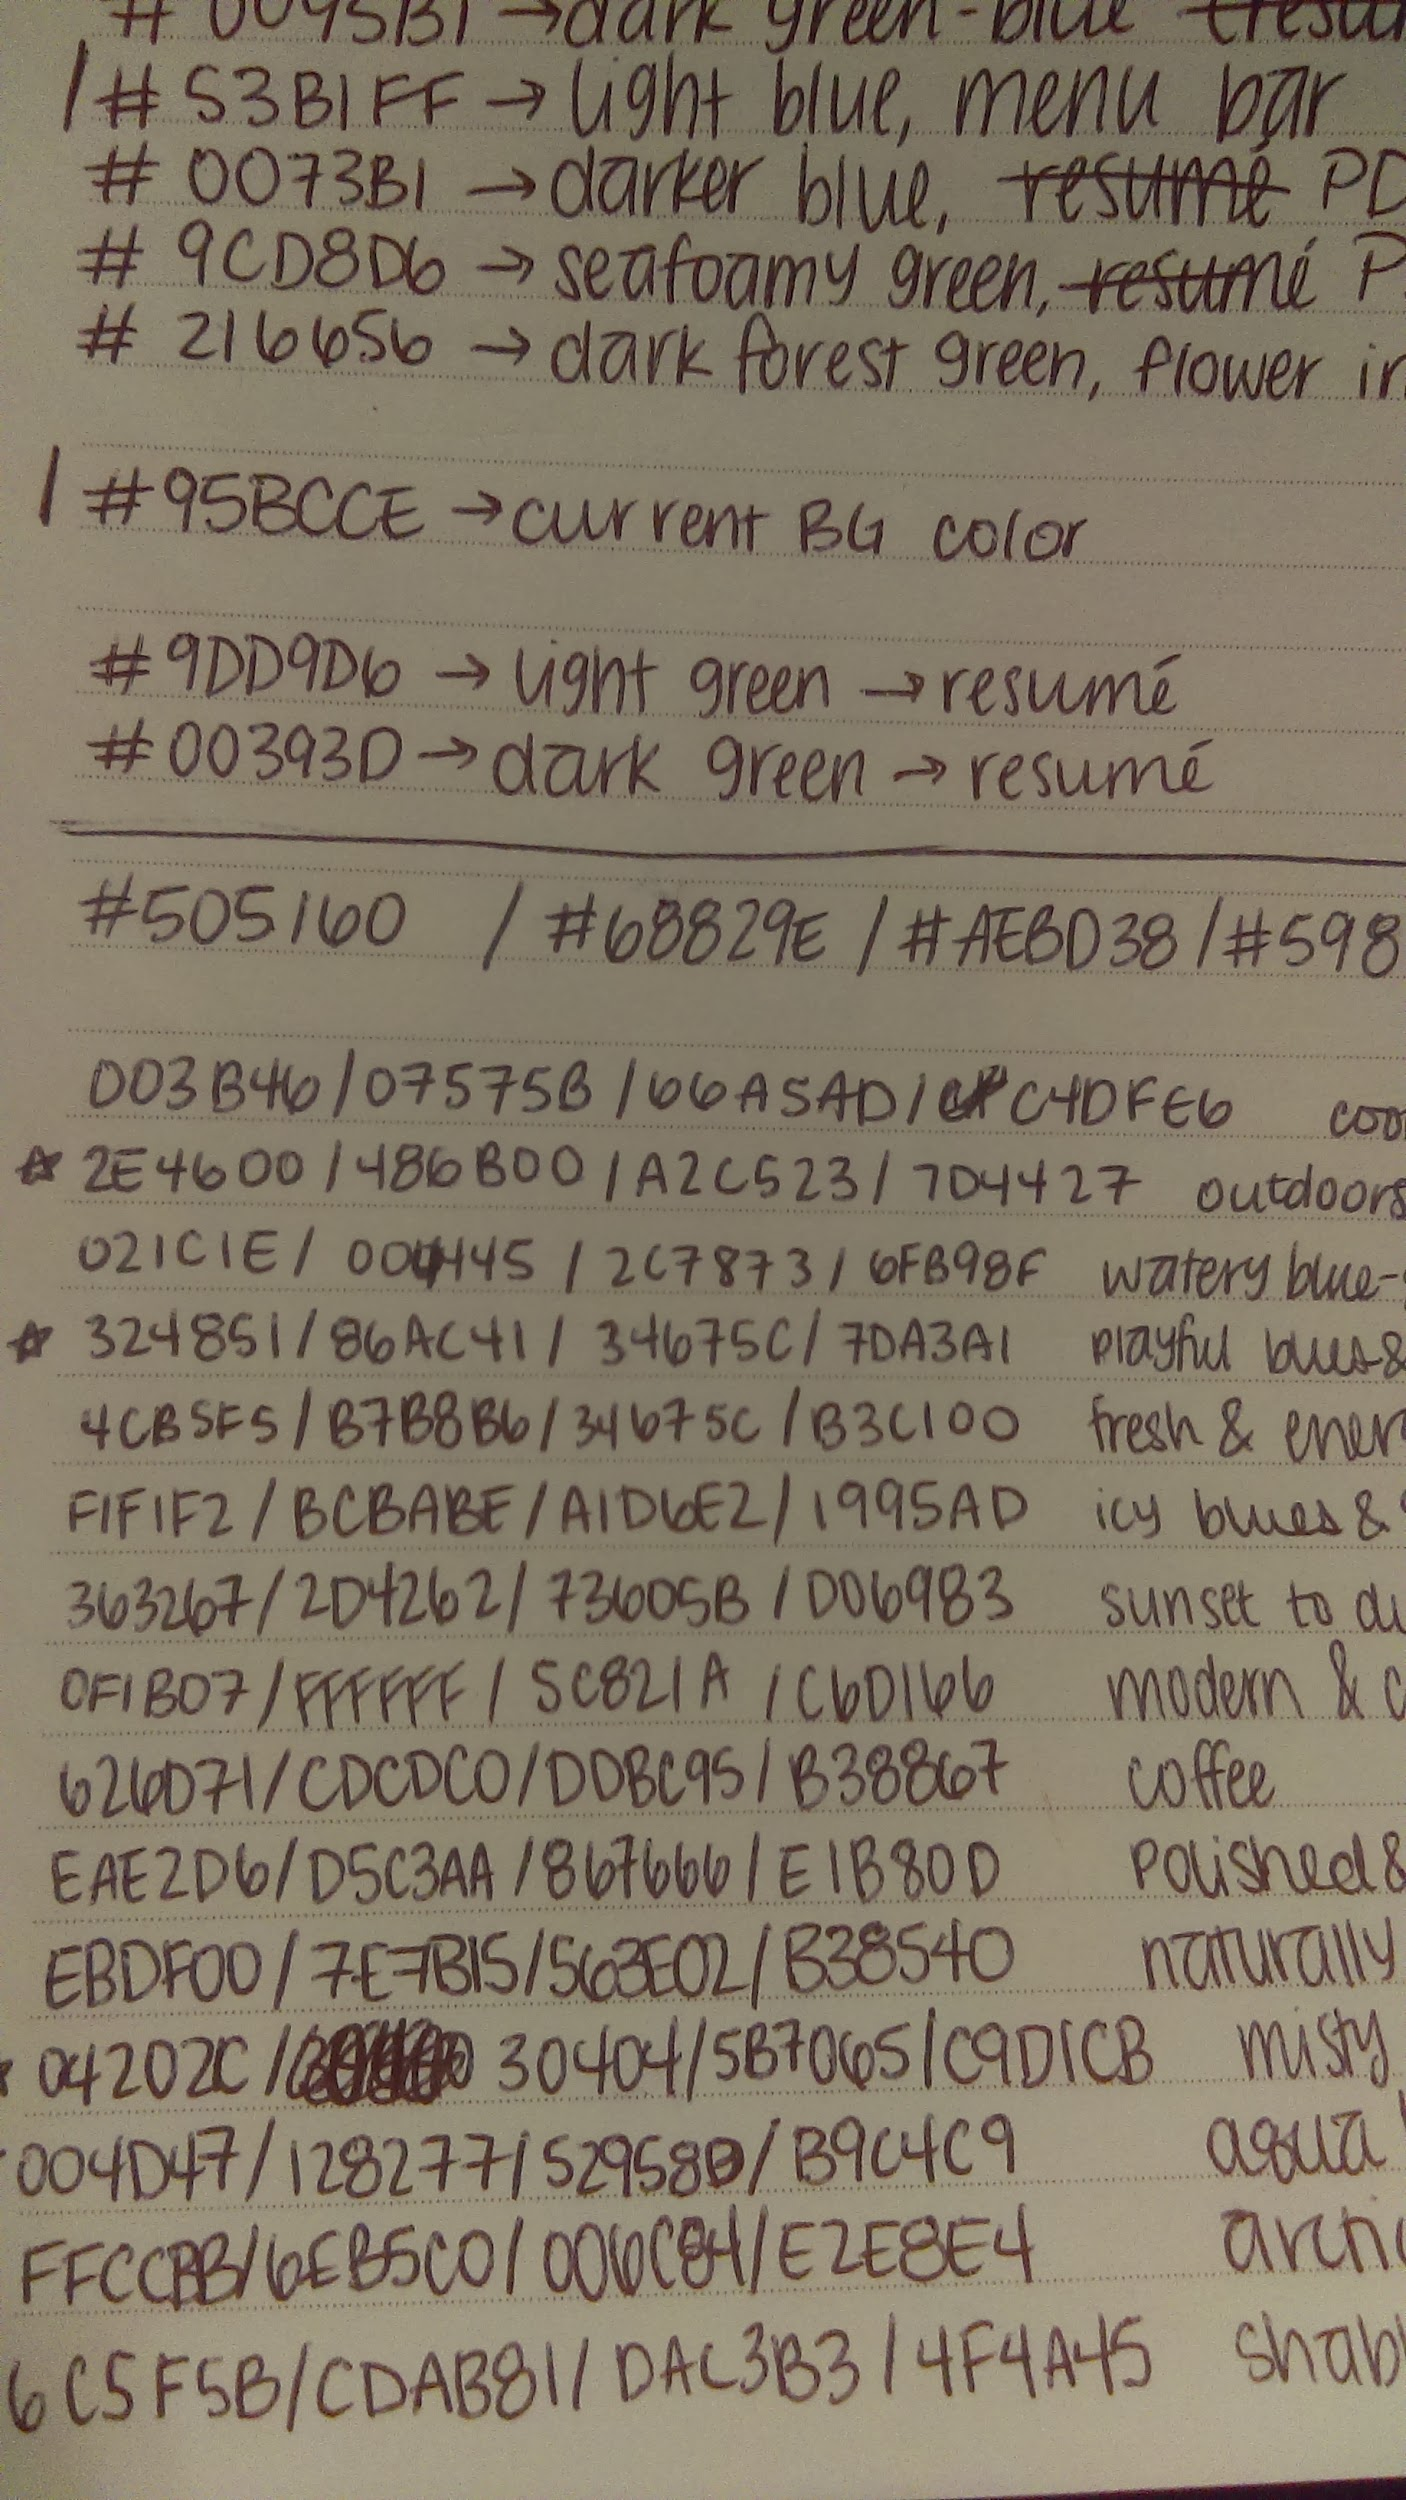 # 0095B1 → dark green-blue
/ # 53B1FF → light blue, menu bar
# 0073B1 → darker blue, resumé PD
# 9CD8D6 → seafoamy green, resumé P
# 216656 → dark forest green, flower in
/ #95BCCE → current BG color
#9DD9D6 → light green → resumé
#00393D → dark green → resumé
#505160 / #68829E / #AEBD38 / #598
003B46 / 07575B / 66A5AD / C4DFE6 coo
☆ 2E4600 / 486B00 / A2C523 / 7D4427 outdoors
021C1E / 004445 / 2C7873 / 6FB98F watery blue-
☆ 324851 / 86AC41 / 34675C / 7DA3A1 playful blues &
4CB5F5 / B7B8B6 / 34675C / B3C100 fresh & ener
F1F1F2 / BCBABE / A1D6E2 / 1995AD icy blues &
363267 / 2D4262 / 73605B / D06983 sunset to du
0F1B07 / FFFFFF / 5C821A / C6D166 modern & c
626D71 / CDCDC0 / DDBC95 / B38867 coffee
EAE2D6 / D5C3AA / 867666 / E1B80D polished &
EBDF00 / 7E7B15 / 563E02 / B38540 naturally
04202C / 30404 / 5B7065 / C9D1CB misty
004D47 / 128277 / 52958B / B9C4C9 aqua
FFCCBB / 6EB5C0 / 006C84 / E2E8E4 arcti
6C5F5B / CDAB81 / DAC3B3 / 4F4A45 shab